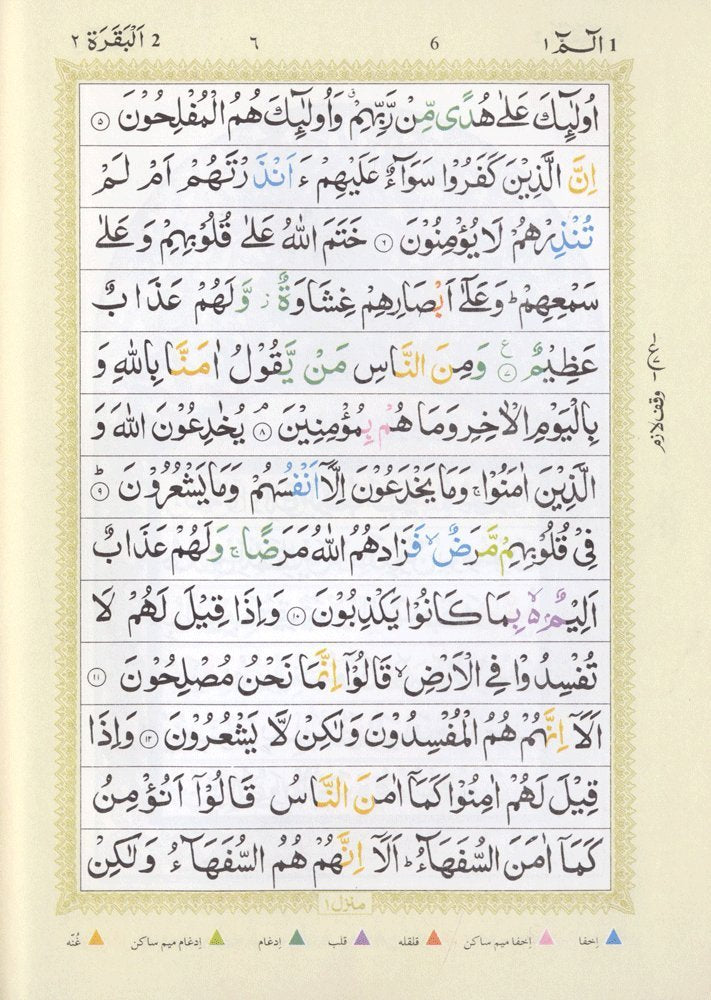 1 الٓمّٓ ١ 6 ٦ 2 اَلْبَقَرَة ٢
اُولٰٓئِكَ عَلٰى هُدًى مِّنْ رَّبِّهِمْ ۙ وَاُولٰٓئِكَ هُمُ الْمُفْلِحُوْنَ ۝٥
اِنَّ الَّذِيْنَ كَفَرُوْا سَوَآءٌ عَلَيْهِمْ ءَاَنْذَرْتَهُمْ اَمْ لَمْ
تُنْذِرْهُمْ لَا يُؤْمِنُوْنَ ۝٦ خَتَمَ اللّٰهُ عَلٰى قُلُوْبِهِمْ وَعَلٰى
سَمْعِهِمْ ؕ وَعَلٰٓى اَبْصَارِهِمْ غِشَاوَةٌ ۫ وَّلَهُمْ عَذَابٌ
عَظِيْمٌ ۝٧ ع وَمِنَ النَّاسِ مَنْ يَّقُوْلُ اٰمَنَّا بِاللّٰهِ وَ
بِالْيَوْمِ الْاٰخِرِ وَمَا هُمْ بِمُؤْمِنِيْنَ ۝٨ۘ يُخٰدِعُوْنَ اللّٰهَ وَ
الَّذِيْنَ اٰمَنُوْا ۚ وَمَا يَخْدَعُوْنَ اِلَّآ اَنْفُسَهُمْ وَمَا يَشْعُرُوْنَ ۝٩ؕ
فِيْ قُلُوْبِهِمْ مَّرَضٌ ۙ فَزَادَهُمُ اللّٰهُ مَرَضًا ۚ وَلَهُمْ عَذَابٌ
اَلِيْمٌۢ ۙ بِمَا كَانُوْا يَكْذِبُوْنَ ۝١٠ وَاِذَا قِيْلَ لَهُمْ لَا
تُفْسِدُوْا فِي الْاَرْضِ ۙ قَالُوْٓا اِنَّمَا نَحْنُ مُصْلِحُوْنَ ۝١١
اَلَآ اِنَّهُمْ هُمُ الْمُفْسِدُوْنَ وَلٰكِنْ لَّا يَشْعُرُوْنَ ۝١٢ وَاِذَا
قِيْلَ لَهُمْ اٰمِنُوْا كَمَآ اٰمَنَ النَّاسُ قَالُوْٓا اَنُؤْمِنُ
كَمَآ اٰمَنَ السُّفَهَآءُ ؕ اَلَآ اِنَّهُمْ هُمُ السُّفَهَآءُ وَلٰكِنْ
ع ٧
وقف لازم
منزل ١
اِخفا اِخفا میم ساکن قلقله قلب اِدغام اِدغام میم ساکن غُنّه